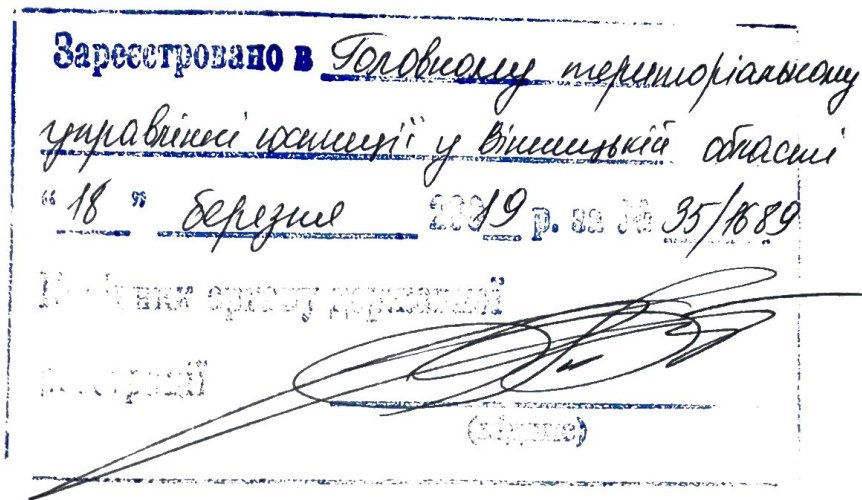 Зареєстровано в Головному територіальному
управлінні юстиції у Вінницькій області
“ 18 ” березня 2019 р. за № 35/1689
Керівник органу державної
реєстрації
(підпис)